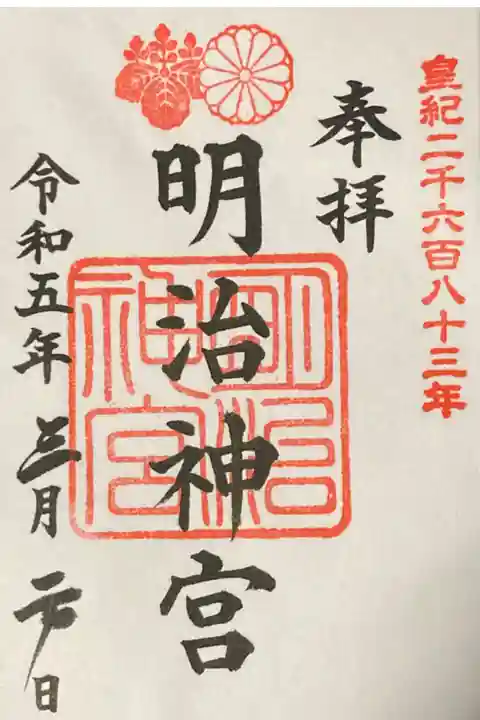 皇紀二千六百八十三年
奉拝
明治神宮
明治
神宮
令和五年 三月 日